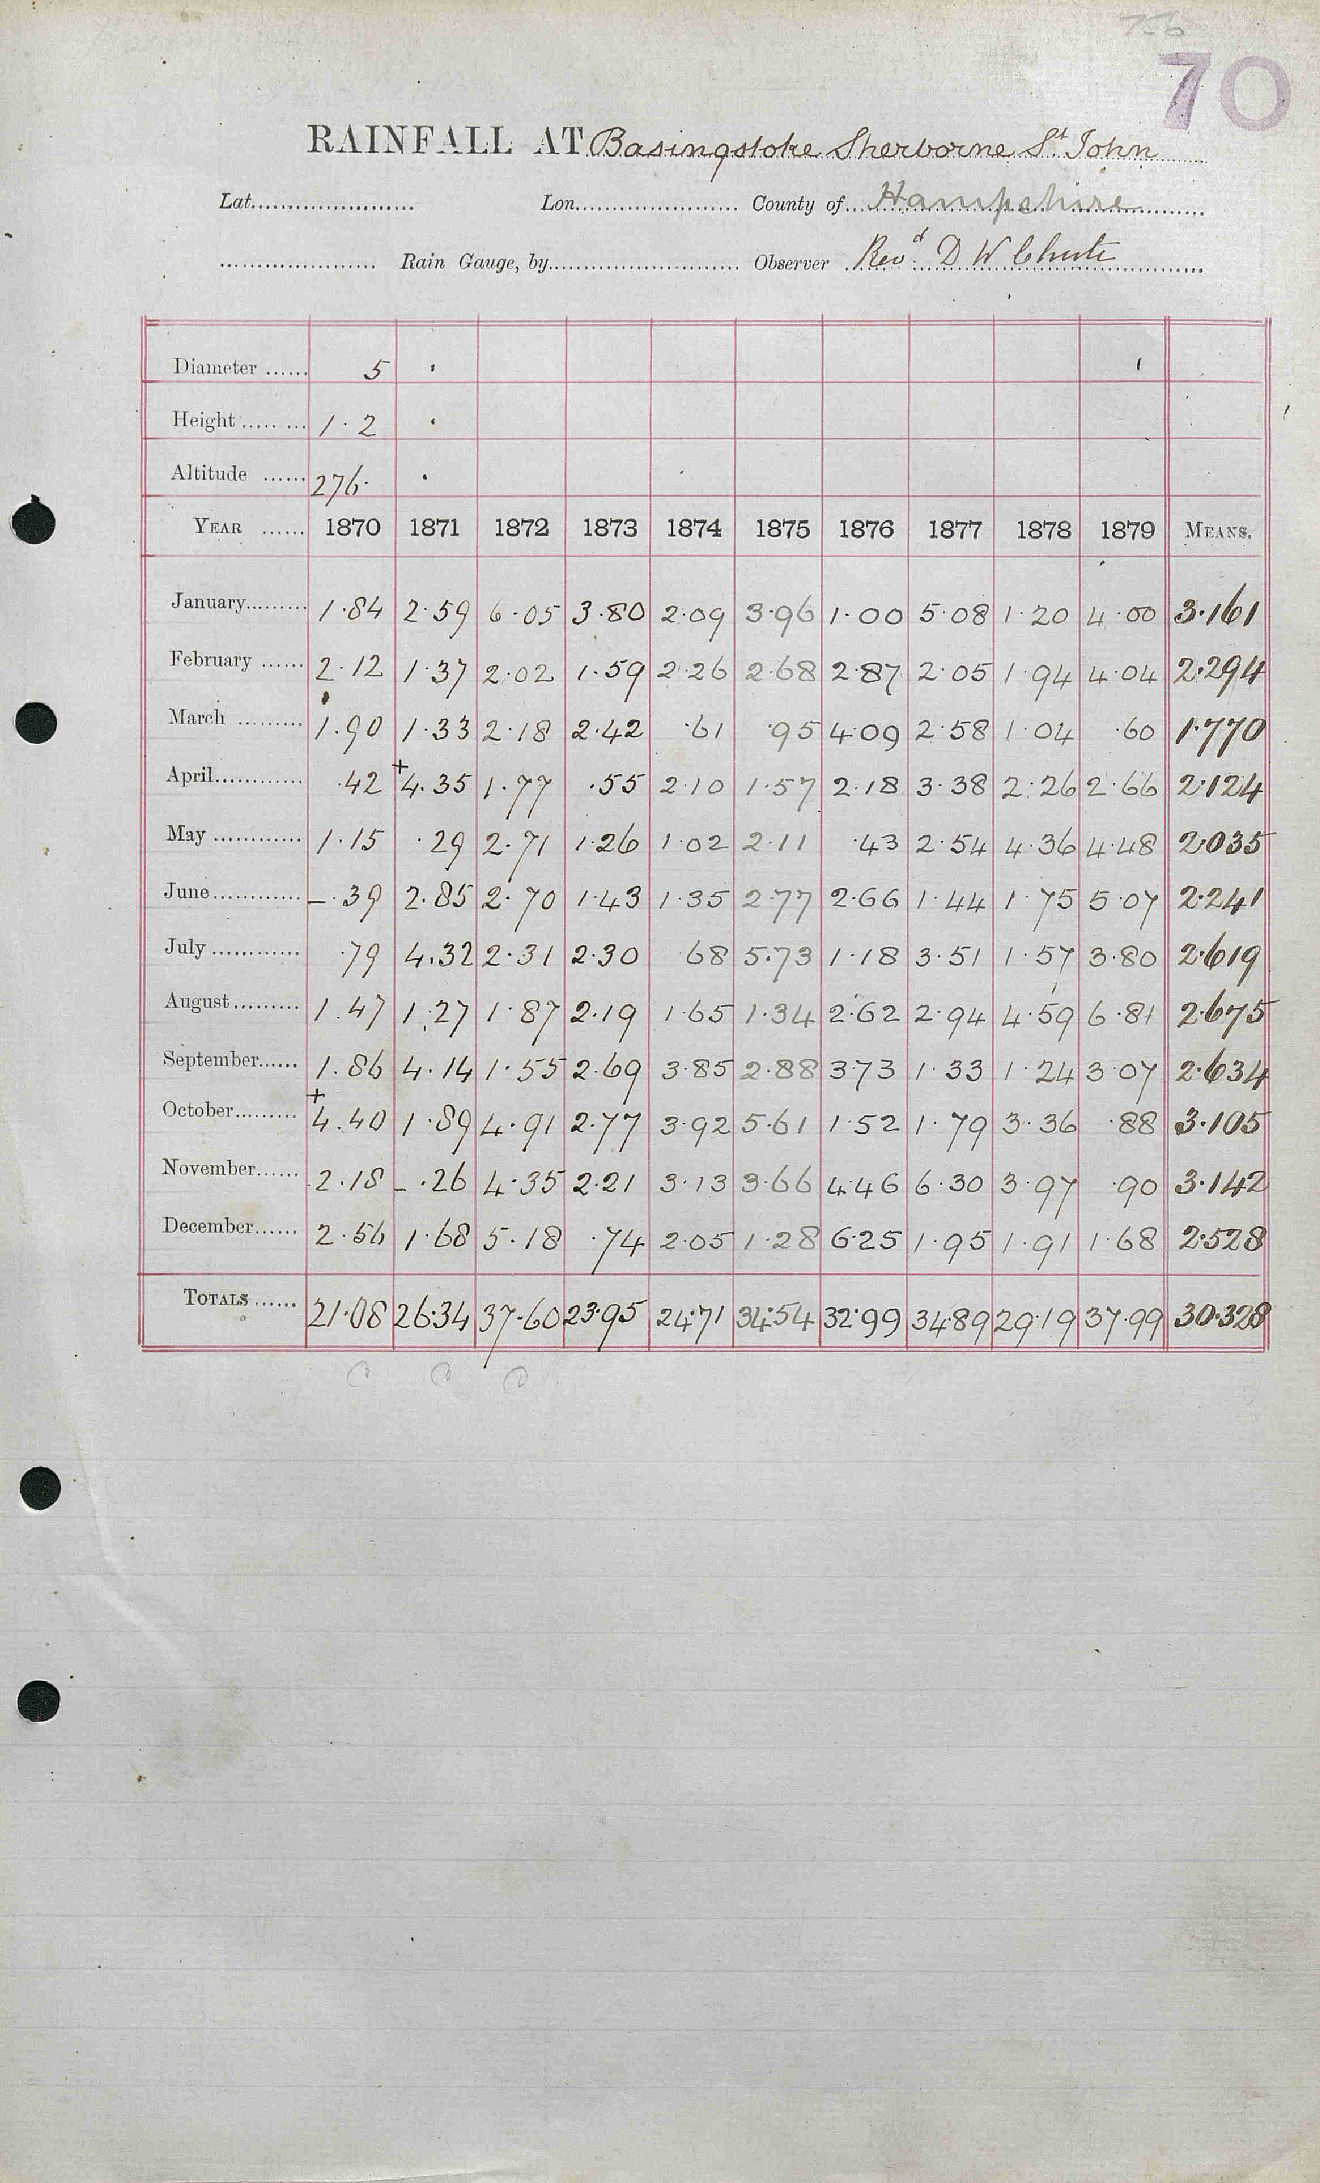 70
RAINFALL AT Basingstoke Sherborne St John
Lat. Lon. County of Hampshire
Rain Gauge, by Observer Revd. D W Chute
Diameter 5
Height 1.2
Altitude 276.
YEAR 1870 1871 1872 1873 1874 1875 1876 1877 1878 1879 MEANS.
January 1.84 2.59 6.05 3.80 2.09 3.96 1.00 5.08 1.20 4.00 3.161
February 2.12 1.37 2.02 1.59 2.26 2.68 2.87 2.05 1.94 4.04 2.294
March 1.90 1.33 2.18 2.42 .61 .95 4.09 2.58 1.04 .60 1.770
April .42 +4.35 1.77 .55 2.10 1.57 2.18 3.38 2.26 2.66 2.124
May 1.15 .29 2.71 1.26 1.02 2.11 .43 2.54 4.36 4.48 2.035
June - .39 2.85 2.70 1.43 1.35 2.77 2.66 1.44 1.75 5.07 2.241
July .79 4.32 2.31 2.30 .68 5.73 1.18 3.51 1.57 3.80 2.619
August 1.47 1.27 1.87 2.19 1.65 1.34 2.62 2.94 4.59 6.81 2.675
September 1.86 4.14 1.55 2.69 3.85 2.88 3.73 1.33 1.24 3.07 2.634
October +4.40 1.89 4.91 2.77 3.92 5.61 1.52 1.79 3.36 .88 3.105
November 2.18 - .26 4.35 2.21 3.13 3.66 4.46 6.30 3.97 .90 3.142
December 2.56 1.68 5.18 .74 2.05 1.28 6.25 1.95 1.91 1.68 2.528
TOTALS 21.08 26.34 37.60 23.95 24.71 34.54 32.99 34.89 29.19 37.99 30.328